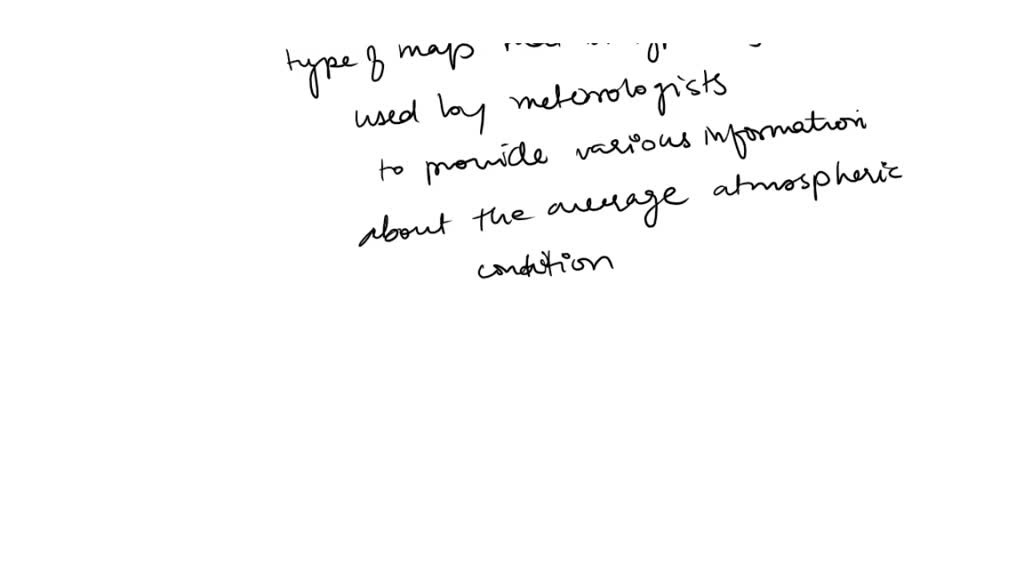 type of map
used by meterologists
to provide various information
about the average atmospheric
condition